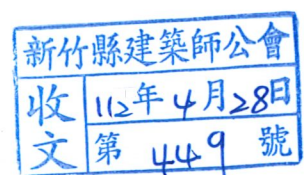 新竹縣建築師公會
收文
112年4月28日
第 449 號